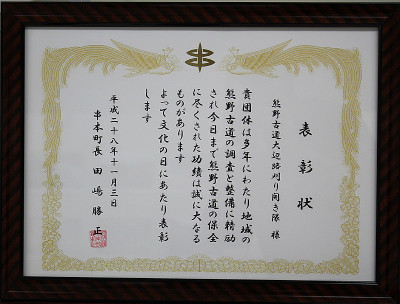 表彰状
熊野古道大辺路刈り開き隊 様
貴団体は多年にわたり地域の
熊野古道の調査と整備に精励
され今日まで熊野古道の保全
に尽くされた功績は誠に大なる
ものがあります
よって文化の日にあたり表彰
します
平成二十八年十一月三日
串本町長 田嶋勝正